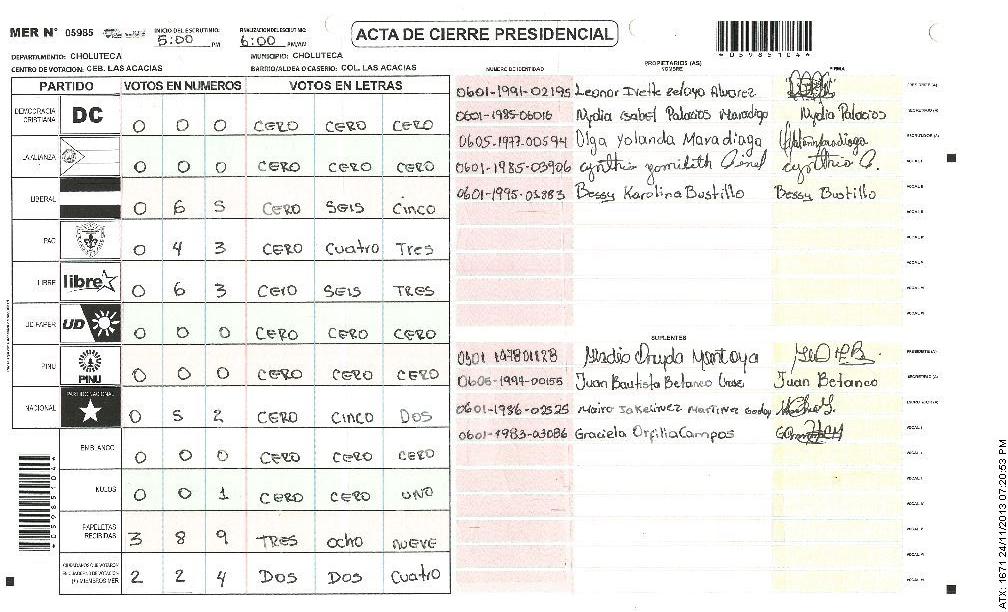 MER N° 05985 INICIO DEL ESCRUTINIO: 5:00 PM FINALIZACION DEL ESCRUTINIO: 6:00 PM/AM
ACTA DE CIERRE PRESIDENCIAL
*05985104*
DEPARTAMENTO: CHOLUTECA MUNICIPIO: CHOLUTECA
CENTRO DE VOTACION: CEB. LAS ACACIAS BARRIO/ALDEA O CASERIO: COL. LAS ACACIAS
PARTIDO VOTOS EN NUMEROS VOTOS EN LETRAS
DEMOCRACIA CRISTIANA DC 0 0 0 CERO CERO CERO
LA ALIANZA 0 0 0 CERO CERO CERO
LIBERAL 0 6 5 CERO SEIS CINCO
PAC 0 4 3 CERO CUATRO TRES
LIBRE libre 0 6 3 CERO SEIS TRES
UD-FAPER UD 0 0 0 CERO CERO CERO
PINU PINU 0 0 0 CERO CERO CERO
NACIONAL PARTIDO NACIONAL 0 5 2 CERO CINCO DOS
EN BLANCO 0 0 0 CERO CERO CERO
NULOS 0 0 1 CERO CERO UNO
PAPELETAS RECIBIDAS 3 8 9 TRES OCHO NUEVE
(+) MIEMBROS MER 2 2 4 DOS DOS CUATRO
*05985104*
NUMERO DE IDENTIDAD PROPIETARIOS (AS) NOMBRE FIRMA
0601-1991-02195 Leonor Ivette Zelaya Alvarez PRESIDENTE (A)
0601-1985-06016 Nydia Isabel Palacios Maradiga Nydia Palacios SECRETARIO (A)
0605-1977-00594 Olga Yolanda Maradiaga ESCRUTADOR (A)
0601-1985-03906 Cynthia Yomileth VOCAL I
0601-1995-01883 Bessy Karolina Bustillo Bessy Bustillo VOCAL II
SUPLENTES
Montoya PRESIDENTE (A)
0605-1994-00155 Juan Bautista Betanco Juan Betanco SECRETARIO (A)
0601-1986-02525 Martinez Godoy ESCRUTADOR (A)
0601-1983-03086 Graciela Orfilia Campos VOCAL I
ATX: 1671 24/11/2013 07:20:53 PM